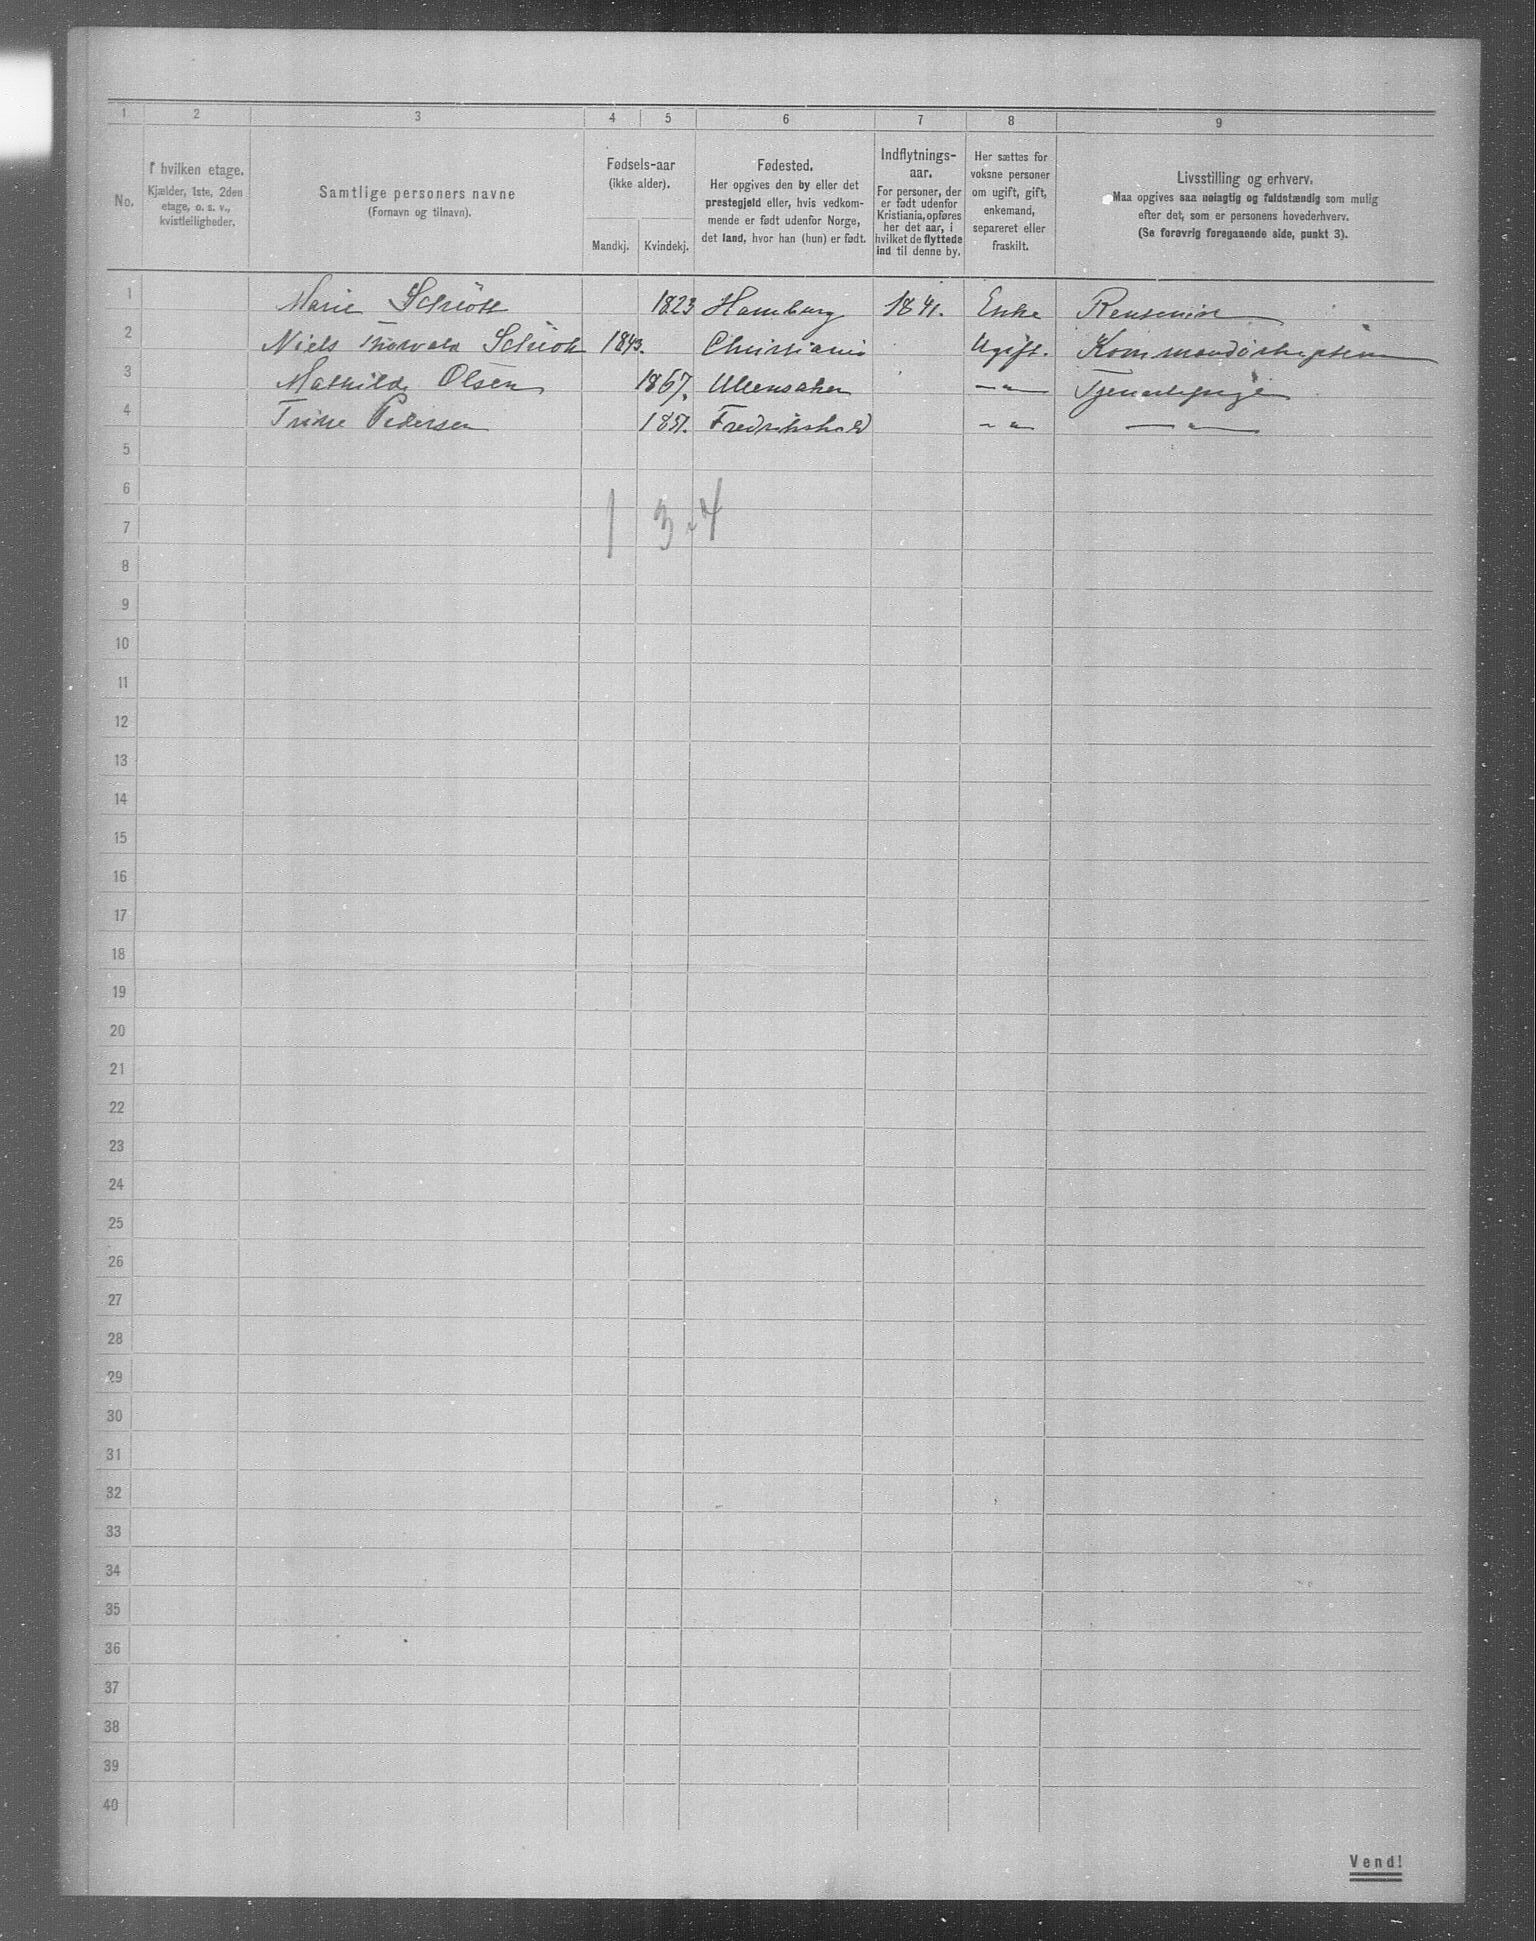 1 2 3 4 5 6 7 8 9
No.
I hvilken etage.
Kjælder, 1ste, 2den
etage, o. s. v.,
kvistleiligheder.
Samtlige personers navne
(Fornavn og tilnavn).
Fødsels-aar
(ikke alder).
Mandkj. Kvindekj.
Fødested.
Her opgives den by eller det
prestegjeld eller, hvis vedkom-
mende er født udenfor Norge,
det land, hvor han (hun) er født.
Indflytnings-
aar.
For personer, der
er født udenfor
Kristiania, opføres
her det aar, i
hvilket de flyttede
ind til denne by.
Her sættes for
voksne personer
om ugift, gift,
enkemand,
separeret eller
fraskilt.
Livsstilling og erhverv.
Maa opgives saa nøiagtig og fuldstændig som mulig
efter det, som er personens hovederhverv.
(Se forøvrig foregaaende side, punkt 3).
1 Marie Schiött 1823 Hamburg 1841. Enke
2 Niels Thorvald Schiött 1843. Christiania Ugift.
3 Mathilde Olsen 1867. Ullensaker —"— Tjenestepige
4 Trine Pedersen 1851. Fredrikshald —"— —"—
5
6
7 1 3 - 4
8
9
10
11
12
13
14
15
16
17
18
19
20
21
22
23
24
25
26
27
28
29
30
31
32
33
34
35
36
37
38
39
40
Vend!